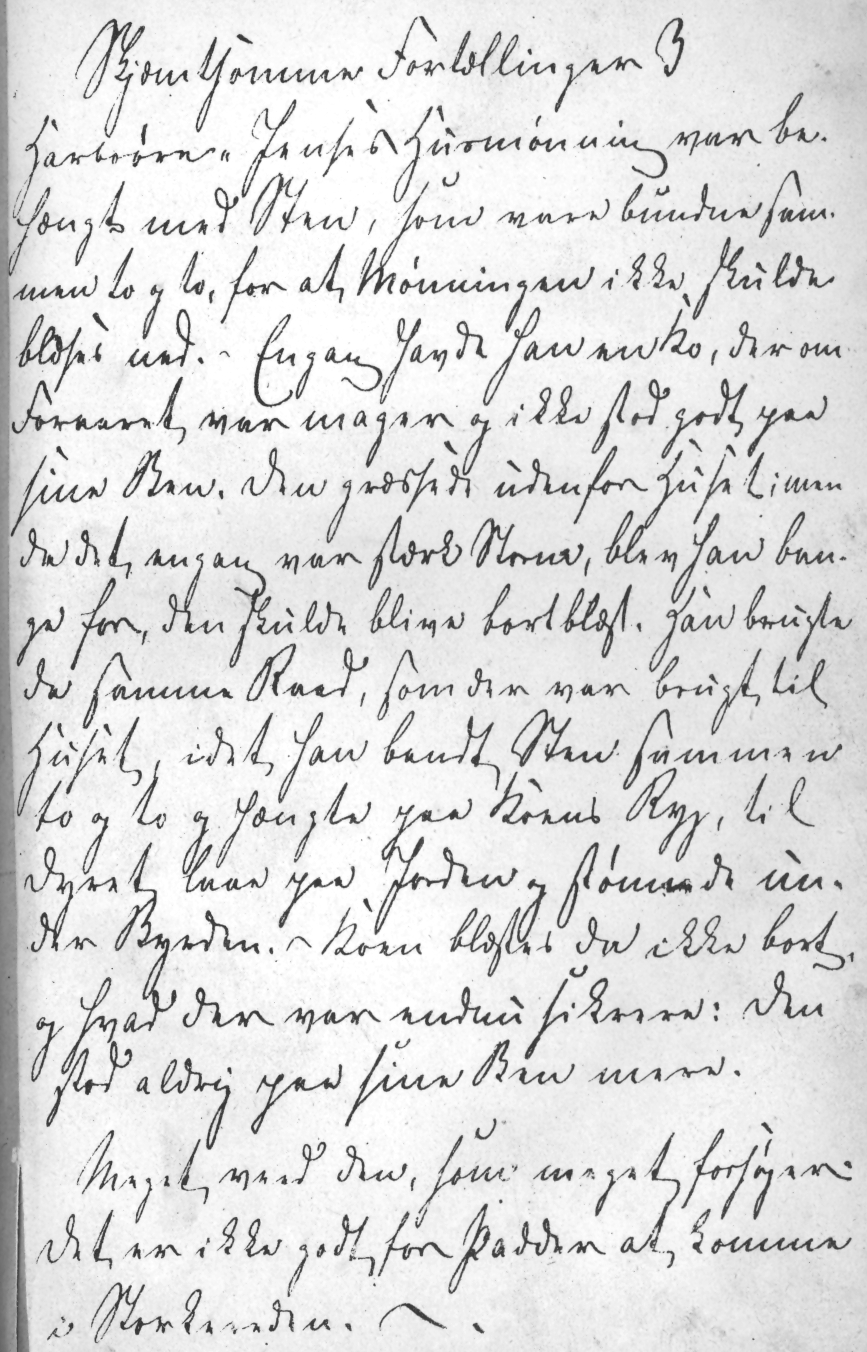 Skjæmtsomme Fortællinger 3
Harboøre-Jenses Husmønning var be-
hængt med Sten, som vare bundne sam-
men to og to, for at Mønningen ikke skulde
blæses ned. - Engang havde han en Ko, der om
Foraaret var mager og ikke stod godt paa
sine Ben. Den græssede udenfor Huset; men
da det engang var stærk Storm, blev han ban-
ge for, den skulde blive bortblæst. Han brugte
da samme Raad, som der var brugt til
Huset, idet han bandt Sten sammen
to og to og hængte paa Koens Ryg, til
Dyret laae paa Jorden og stønnede un-
der Byrden. - Koen blæstes da ikke bort,
og hvad der var endnu sikrere: den
stod aldrig paa sine Ben mere.
Meget veed den, som meget forsøger:
det er ikke godt for Padder at komme
i Storkereden.